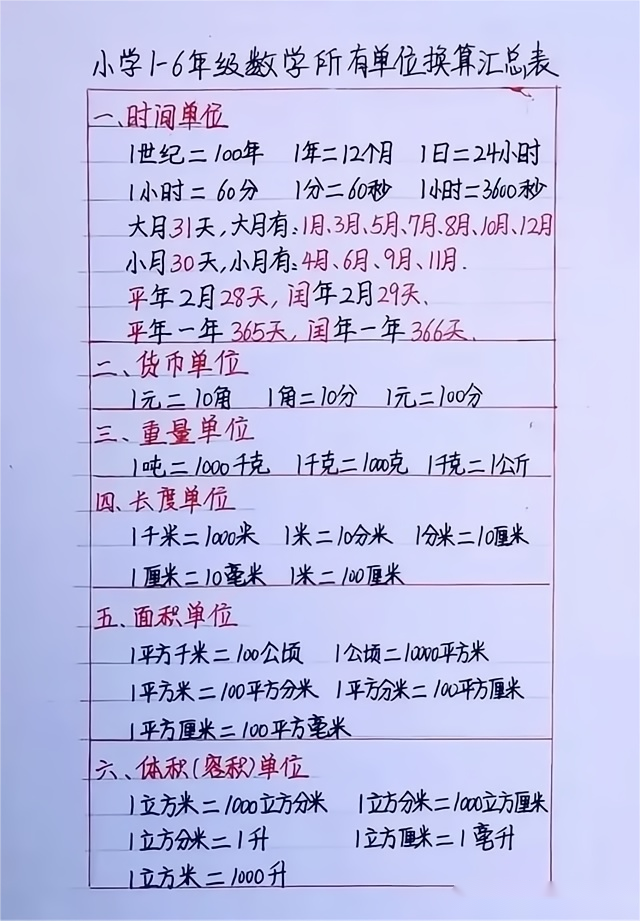 小学1-6年级数学所有单位换算汇总表
一、时间单位
1世纪=100年 1年=12个月 1日=24小时
1小时=60分 1分=60秒 1小时=3600秒
大月31天,大月有:1月、3月、5月、7月、8月、10月、12月
小月30天,小月有:4月、6月、9月、11月.
平年2月28天,闰年2月29天.
平年一年365天,闰年一年366天.
二、货币单位
1元=10角 1角=10分 1元=100分
三、重量单位
1吨=1000千克 1千克=1000克 1千克=1公斤
四、长度单位
1千米=1000米 1米=10分米 1分米=10厘米
1厘米=10毫米 1米=100厘米
五、面积单位
1平方千米=100公顷 1公顷=10000平方米
1平方米=100平方分米 1平方分米=100平方厘米
1平方厘米=100平方毫米
六、体积(容积)单位
1立方米=1000立方分米 1立方分米=1000立方厘米
1立方分米=1升 1立方厘米=1毫升
1立方米=1000升